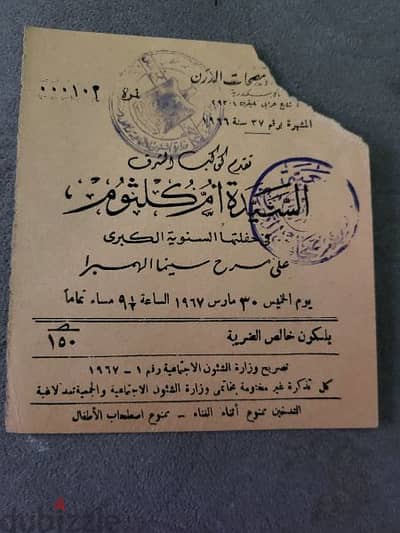 مصحات الدرن
نمرة ٠٠٠١٠٢
المشهرة برقم ٣٧ سنة ١٩٦٦
تقدم كوكب الشرق
السيدة أم كلثوم
في حفلتها السنوية الكبرى
على مسرح سينما الهمبرا
يوم الخميس ٣٠ مارس ١٩٦٧ الساعة ٩½ مساء تماما
بلكون خالص الضريبة ١٥٠
تصريح وزارة الشئون الاجتماعية رقم ١ - ١٩٦٧
كل تذكرة غير مختومة بخاتمى وزارة الشئون الاجتماعية والجمعية تعد لاغية
التدخين ممنوع أثناء الغناء - ممنوع اصطحاب الأطفال
dubizzle